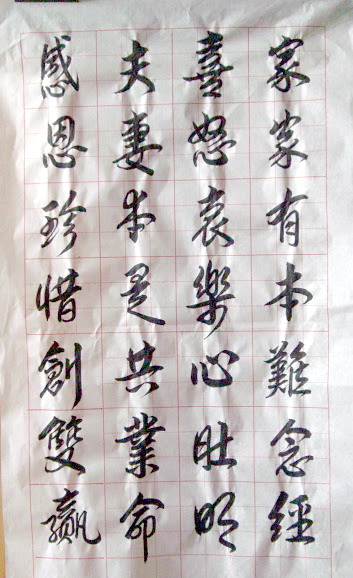 家家有本難念經
喜怒哀樂心肚明
夫妻本是共業命
感恩珍惜創雙贏